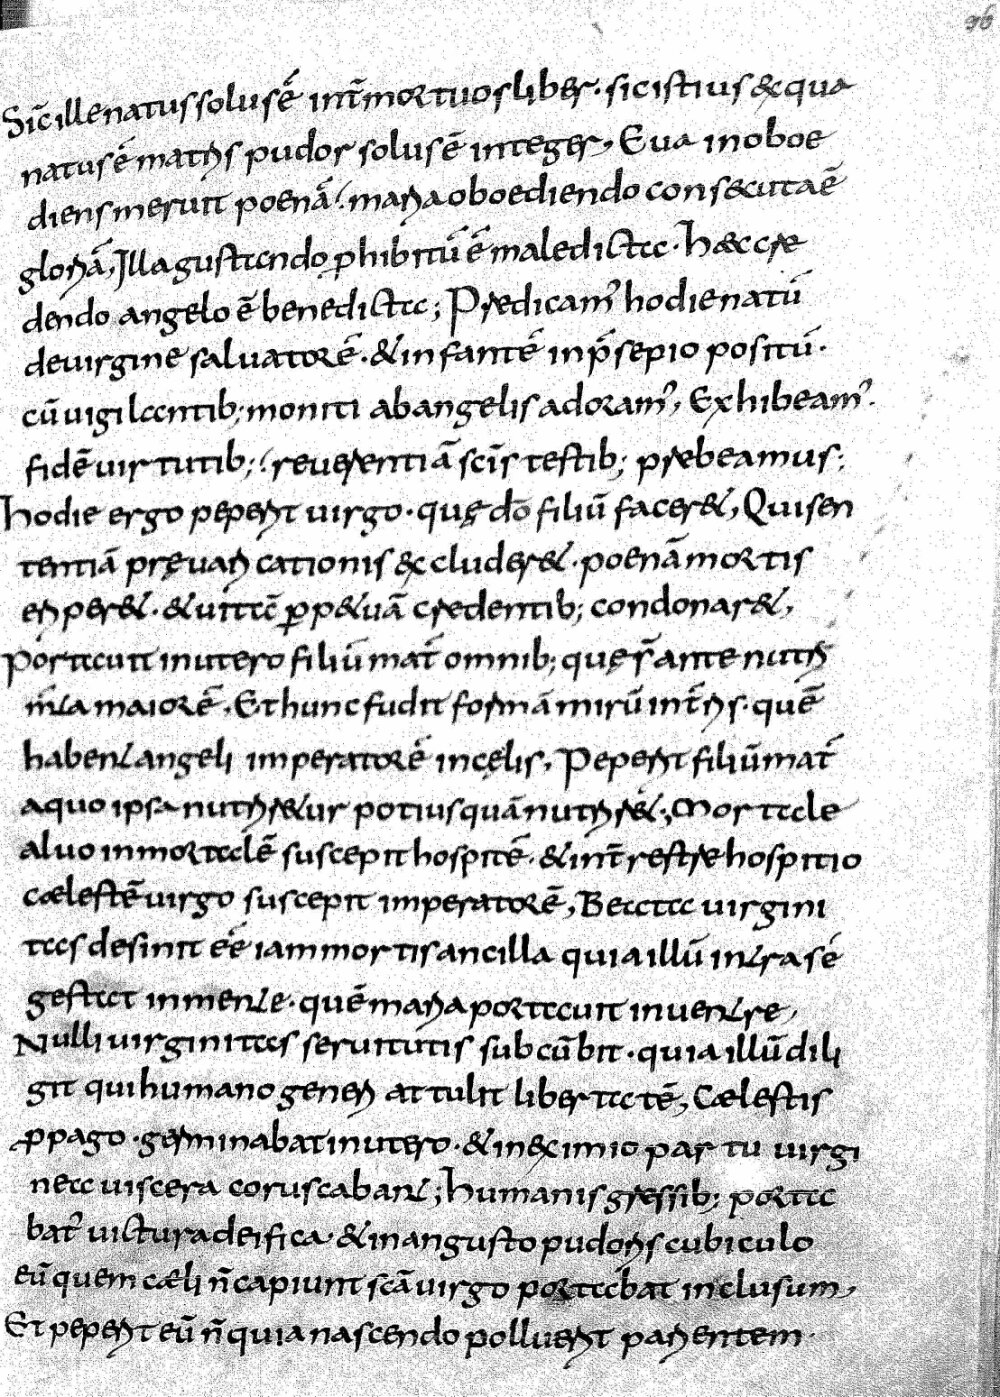 96
Sic̄ ille natus solus ē int̄ mortuos liber · sic istius & qua
natus ē mat̄ris pudor solus ē integer, Eua inoboe
diens meruit poenā, maria oboediendo consecuta ē
gloriā, Illa gustando ꝓhibitū ē maledicta · Haec cre
dendo angelo ē benedicta; Predicam' hodie natū
de uirgine saluatorē · & infantē in p̄sepio positū ·
cū uigilantib; moniti ab angelis adoram', Exhibeam' ·
fidē uirtutib; reuerentiā sc̄is testib; prebeamus;
Hodie ergo peperit uirgo · quę dō filiū facer&, Qui sen
tentiā pręuaricationis &cluder& · poenā mortis
eriper& · & uitā ꝑp&uā credentib; condonar&,
Portauit in utero filiū mat̄ omnib; quę r̄ ante nutri
m̄ta maiorē, Et hunc fudit formā mirū int̄ris · quē
habent angeli imperatorē in cęlis, Peperit filiū mat̄
a quo ipsa nutrir&ur potius quā nutrir&; Mortale
aluo inmortalē suscepit hospitē · & int̄ restre hospitio
cælestē uirgo suscepit imperatorē, Beata uirgini
tas desinit eē iam mortis ancilla quia illū intra sē
gestat in mente · quē maria portauit in uentre,
Nulli uirginitas seruitutis subcūbit · quia illū dili
git qui humano generi attulit libertatē, Cælestis
ꝓpago · germinabat in utero · & in eximio partu uirgi
nea uiscera coruscabant; Humanis gressib; porta
bat̄ uictura deifica · & in angusto pudoris cubiculo
eū quem cæli n̄ capiunt sc̄a uirgo portabat inclusum,
Et peperit eū n̄ quia nascendo polluerit parientem ·